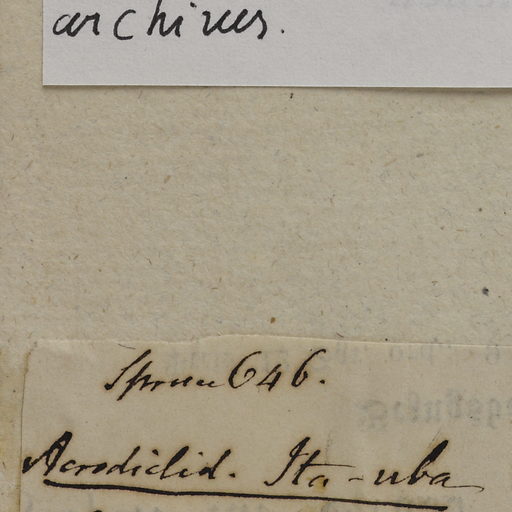 archives.
Spruce 646.
Acrodiclid. Ita-uba